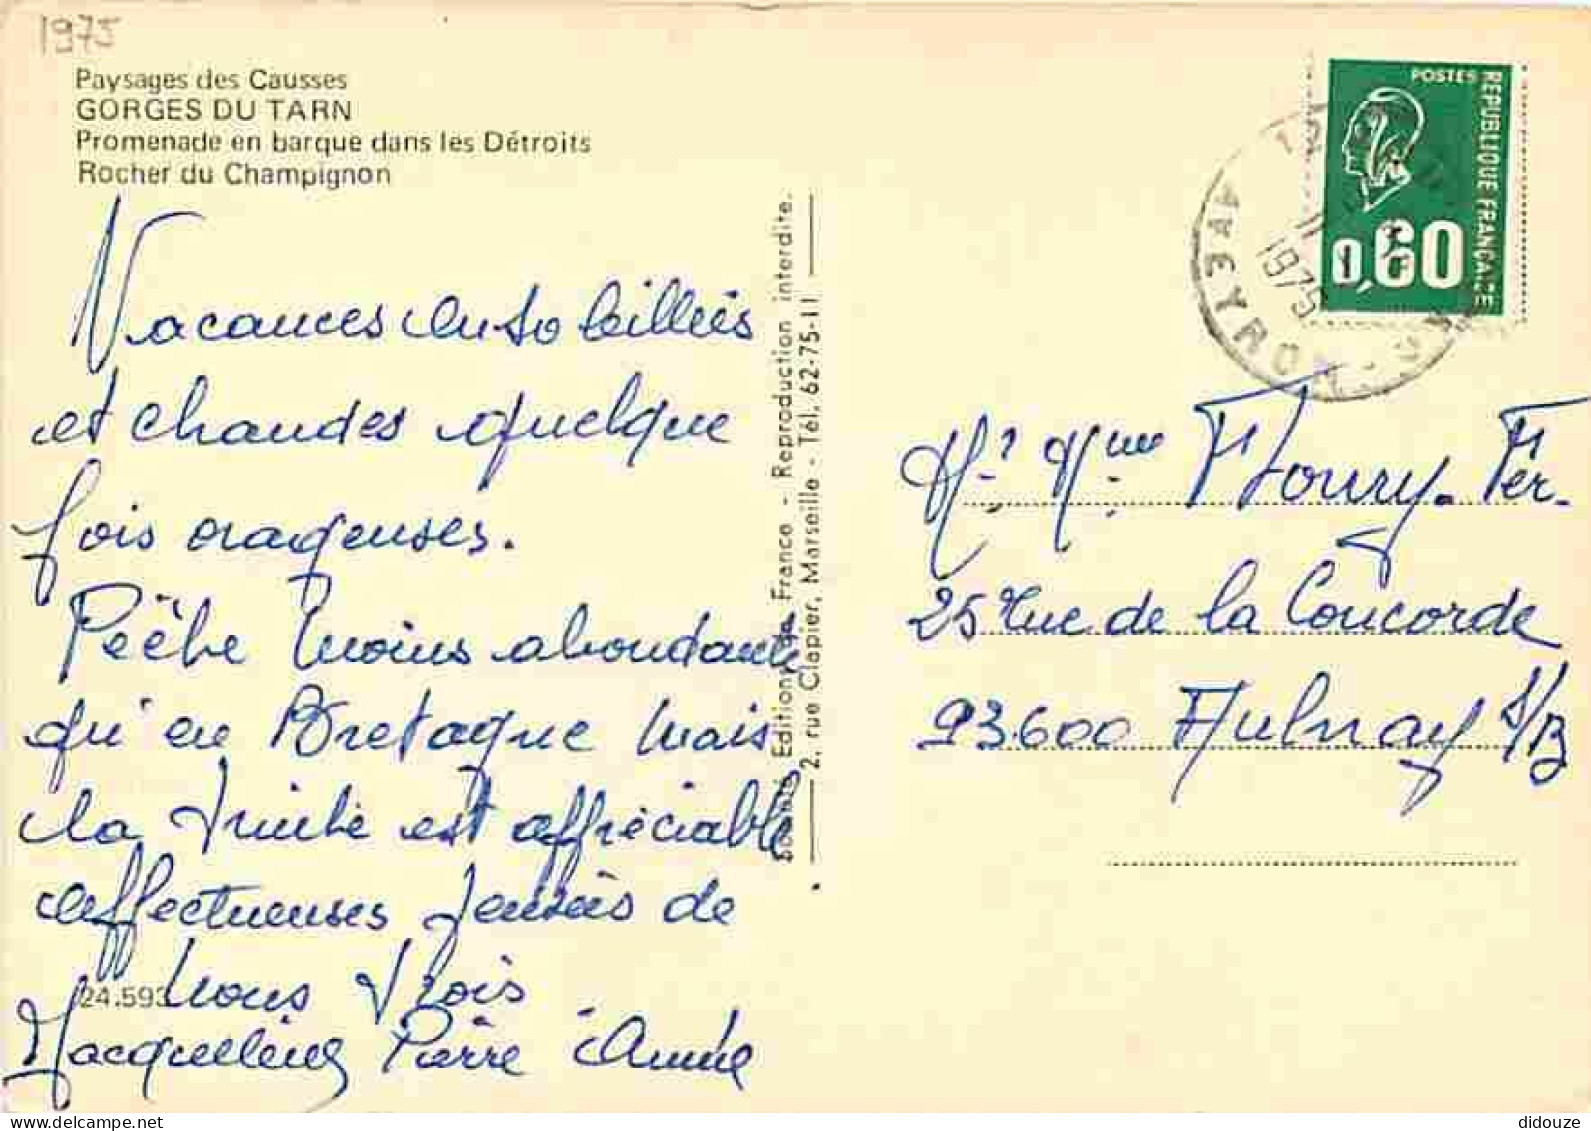 1975
Paysages des Causses
GORGES DU TARN
Promenade en barque dans les Détroits
Rocher du Champignon
Vacances ensoleillées
et chaudes quelque
fois orageuses.
Pêche moins abondante
qu'en Bretagne mais
la truite est appréciable
affectueuses pensées de
nous trois
Jacqueline Pierre Année
24.593
Editions de France - Reproduction interdite.
2, rue Clapier, Marseille - Tél. 62-75-11
POSTES
REPUBLIQUE FRANCAISE
0,60
AVEYRON
1975
Mr Mme Floury. Fer.
25 rue de la Concorde
93.600 Aulnay s/B
delcampe.net
didouze